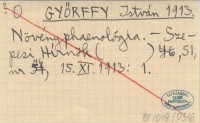 ? O GYŐRFFY István 1913.
Növényphaenológia. – Sze-
pesi Hírnök ( – ) 46, 51,
nr 15. XI. 1913: 1.